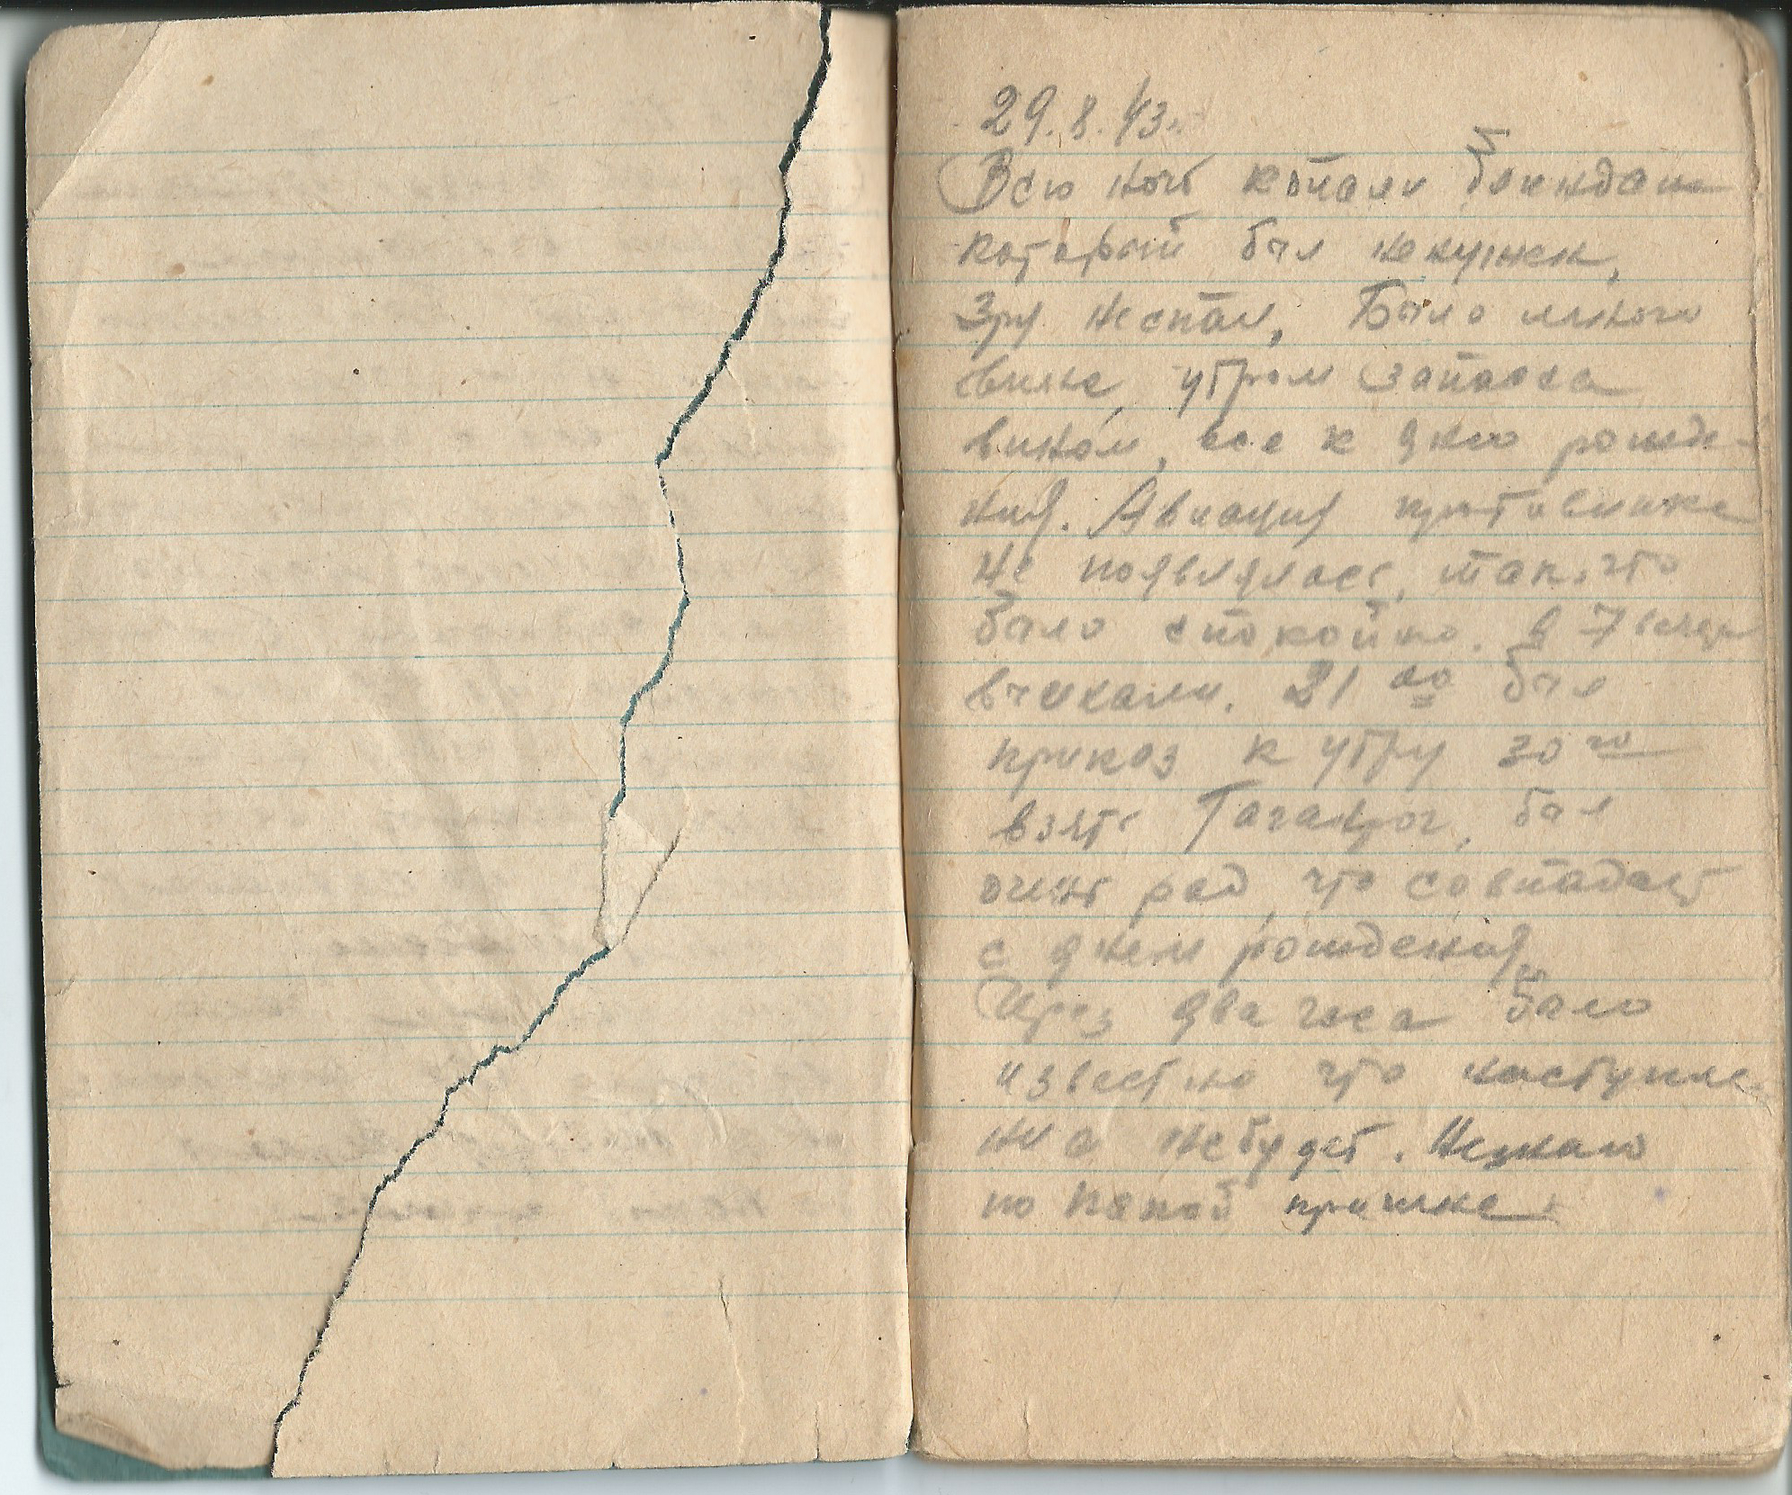 29.8.43.
Всю ночь копали блиндаж
который был ненужен,
Зру неспал, Было много
вина, утром запасся
вином, все к дню рожде-
ния. Авиация противника
не появлялась, так что
было спокойно. В 7
21 го был
приказ к утру 30 го
взять Таганрог, был
очень рад, что совпадает
с днем рождения
Через два часа было
известно что наступле-
ние небудет. Незнаю
по какой причине.